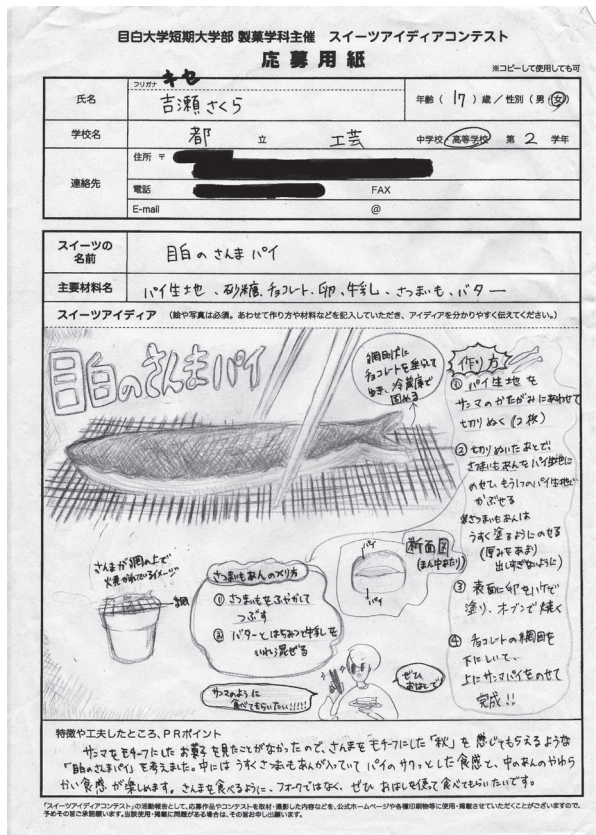 目白大学短期大学部 製菓学科主催 スイーツアイディアコンテスト
応募用紙
※コピーして使用しても可
フリガナ キセ
氏名 吉瀬さくら 年齢( 17 )歳/性別(男・女)
学校名 都 立 工芸 中学校・高等学校 第 2 学年
連絡先
住所 〒
電話 FAX
E-mail @
スイーツの名前 目白のさんまパイ
主要材料名 パイ生地、砂糖、チョコレート、卵、牛乳、さつまいも、バター
スイーツアイディア (絵や写真は必須。あわせて作り方や材料などを記入していただき、アイディアを分かりやすく伝えてください。)
目白のさんまパイ
網目状に
チョコレートを垂らして
ゆき、冷蔵庫で
固める
作り方
① パイ生地を
サンマのかたがみにあわせて
切りぬく(2枚)
② 切りぬいたあとで、
さつまいもあんをパイ生地に
のせ、もう1つのパイ生地で
かぶせる
※さつまいもあんは
うすく塗るようにのせる
(厚みをあまり
出しすぎないように)
③ 表面に卵をハケで
塗り、オブンで焼く
④ チョコレートの網目を
下にしいて、
上にサンマパイをのせて
完成!!
さんまが網の上で
火焼かれているイメージ
網
さつまいもあんのつくり方
① さつまいもをふやかして
つぶす
② バターとはちみつと牛乳を
いれら混ぜる
パイ
断面図
(まん中あたり)
パイ
サンマのように
食べてもらいたい!!!!!
ぜひ
おはしで
特徴や工夫したところ、PRポイント
サンマをモチーフにしたお菓子を見たことがなかったので、さんまをモチーフにした「秋」を感じてもらえるような
「目白のさんまパイ」を考えました。中にはうすくさつまいもあんが入っていてパイのサクッとした食感と、中のあんのやわら
かい食感が楽しめます。さんまを食べるように、フォークではなく、ぜひおはしを使って食べてもらいたいです。
「スイーツアイディアコンテスト」の活動報告として、応募作品やコンテストを取材・撮影した内容などを、公式ホームページや各種印刷物等に使用・掲載させていただくことがございますので、
予めその旨ご承諾願います。当該使用・掲載に問題がある場合は、その旨お申し出願います。